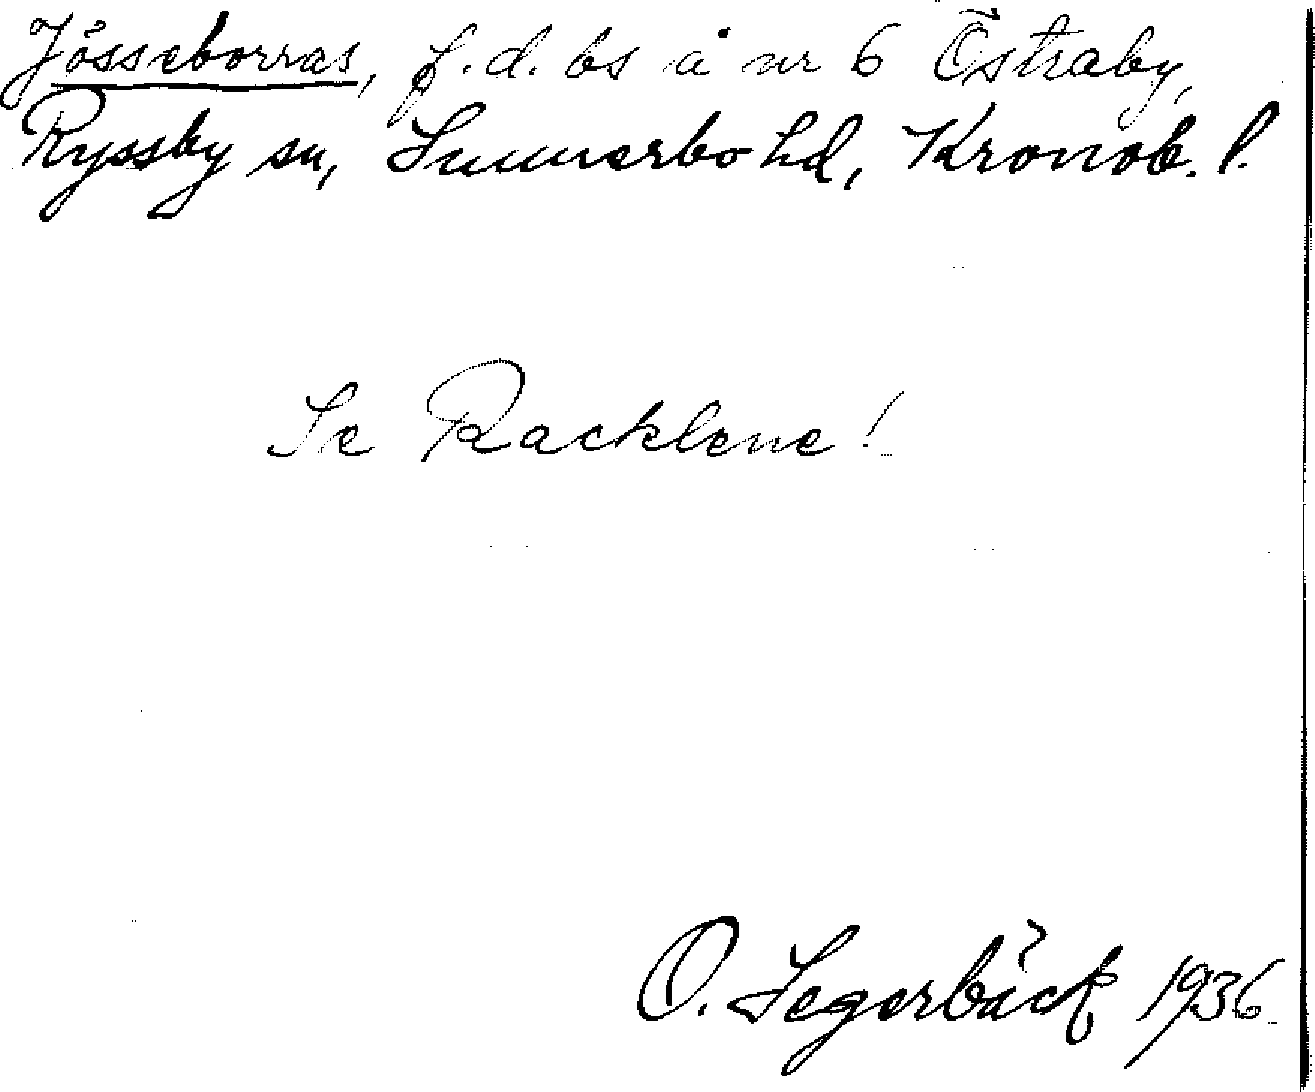 Jösseborras, f.d. bs å nr 6 Östraby,
Ryssby sn, Sunnerbo hd, Kronob. l.
Se Racklene!
O. Segerbäck 1936